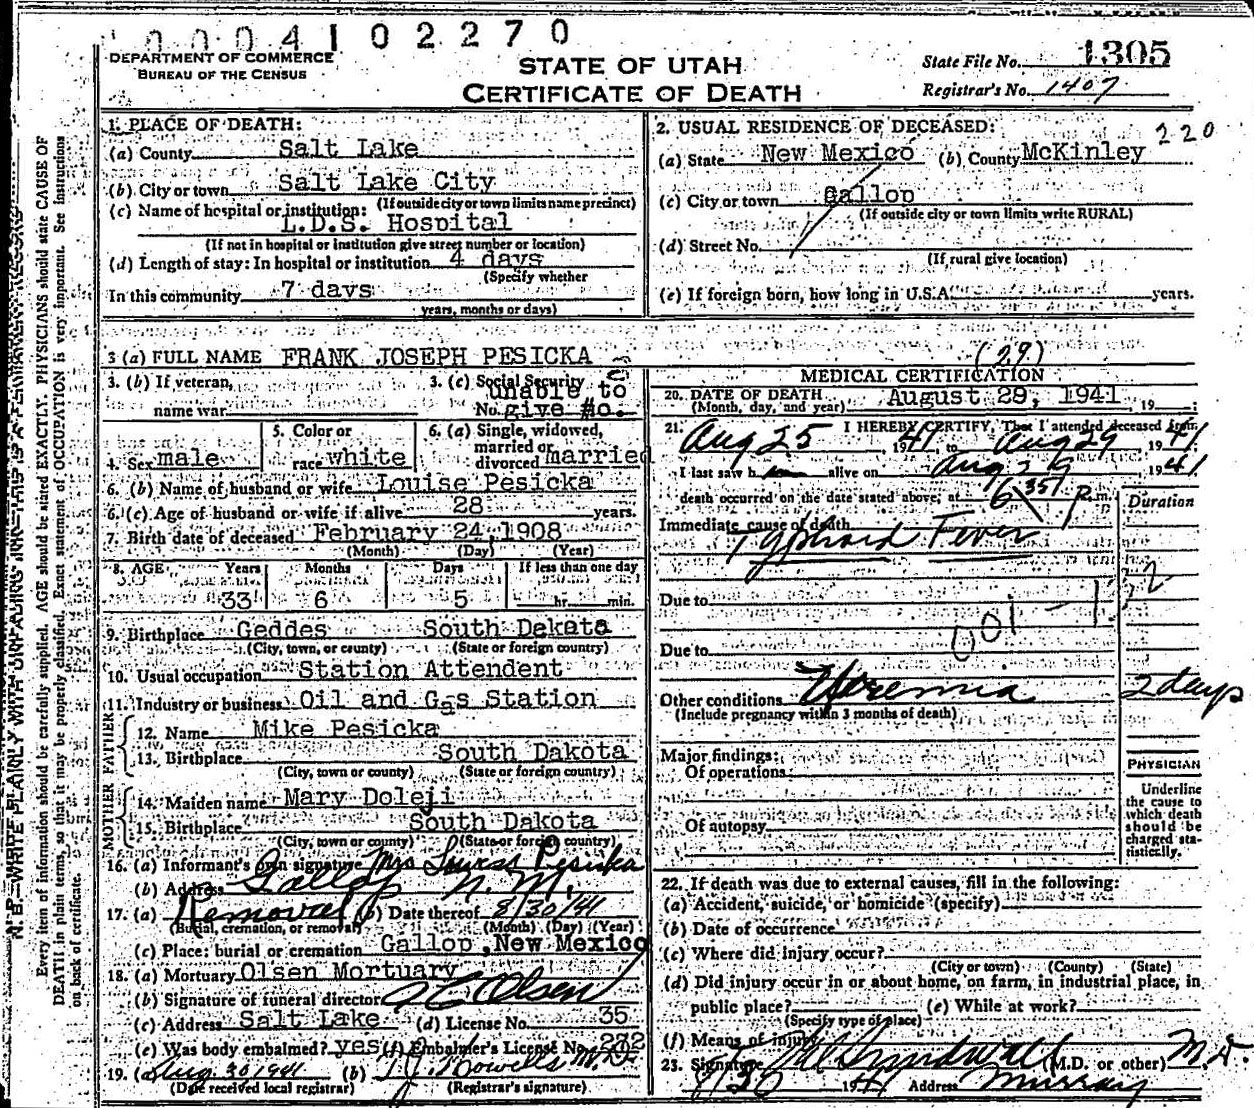 0004102270
DEPARTMENT OF COMMERCE
BUREAU OF THE CENSUS
STATE OF UTAH
CERTIFICATE OF DEATH
State File No. 1305
Registrar's No. 1407
1. PLACE OF DEATH:
(a) County Salt Lake
(b) City or town Salt Lake City
(If outside city or town limits name precinct)
(c) Name of hospital or institution:
L.D.S. Hospital
(If not in hospital or institution give street number or location)
(d) Length of stay: In hospital or institution 4 days
(Specify whether
In this community 7 days
years, months or days)
2. USUAL RESIDENCE OF DECEASED:
220
(a) State New Mexico (b) County McKinley
(c) City or town Gallop
(If outside city or town limits write RURAL)
(d) Street No.
(If rural give location)
(e) If foreign born, how long in U.S.A. years.
3 (a) FULL NAME FRANK JOSEPH PESICKA
3. (b) If veteran,
name war
3. (c) Social Security
No. unable to
give #o.
4. Sex male
5. Color or
race white
6. (a) Single, widowed,
married or
divorced married
6. (b) Name of husband or wife Louise Pesicka
6. (c) Age of husband or wife if alive 28 years.
7. Birth date of deceased February 24, 1908
(Month) (Day) (Year)
8. AGE Years Months Days If less than one day
33 6 5 hr. min.
9. Birthplace Geddes South Dekota
(City, town, or county) (State or foreign country)
10. Usual occupation Station Attendent
11. Industry or business Oil and Gas Station
FATHER
12. Name Mike Pesicka
13. Birthplace South Dakota
(City, town or county) (State or foreign country)
MOTHER
14. Maiden name Mary Doleji
15. Birthplace South Dakota
(City, town or county) (State or foreign country)
16. (a) Informant's own signature Mrs Louise Pesicka
(b) Address Gallop N. M.
17. (a) Removal (b) Date thereof 8/30/41
(Burial, cremation, or removal) (Month) (Day) (Year)
(c) Place: burial or cremation Gallop, New Mexico
18. (a) Mortuary Olsen Mortuary
(b) Signature of funeral director Olsen
(c) Address Salt Lake (d) License No. 35
(e) Was body embalmed? yes (f) Embalmer's License No. 272
19. (a) Aug. 30 1941 (b) Howells M.D.
(Date received local registrar) (Registrar's signature)
(29)
MEDICAL CERTIFICATION
20. DATE OF DEATH August 29, 1941, 19
(Month, day, and year)
21. I HEREBY CERTIFY, That I attended deceased from
Aug 25 1941 to Aug 29 1941
I last saw him alive on Aug 29 1941
death occurred on the date stated above, at 6 35 P.m.
Duration
Immediate cause of death
Typhoid Fever
Due to
001 - 1
Due to
Other conditions Uremia 2 days
(Include pregnancy within 3 months of death)
Major findings:
Of operations
Of autopsy
PHYSICIAN
Underline
the cause to
which death
should be
charged sta-
tistically.
22. If death was due to external causes, fill in the following:
(a) Accident, suicide, or homicide (specify)
(b) Date of occurrence
(c) Where did injury occur?
(City or town) (County) (State)
(d) Did injury occur in or about home, on farm, in industrial place, in
public place? (e) While at work?
(Specify type of place)
(f) Means of injury
23. Signature (M.D. or other) M.D.
8/30 1941 Address Murray
N. B.—WRITE PLAINLY WITH UNFADING INK—THIS IS A PERMANENT RECORD
Every item of information should be carefully supplied. AGE should be stated EXACTLY. PHYSICIANS should state CAUSE OF
DEATH in plain terms, so that it may be properly classified. Exact statement of OCCUPATION is very important. See instructions
on back of certificate.